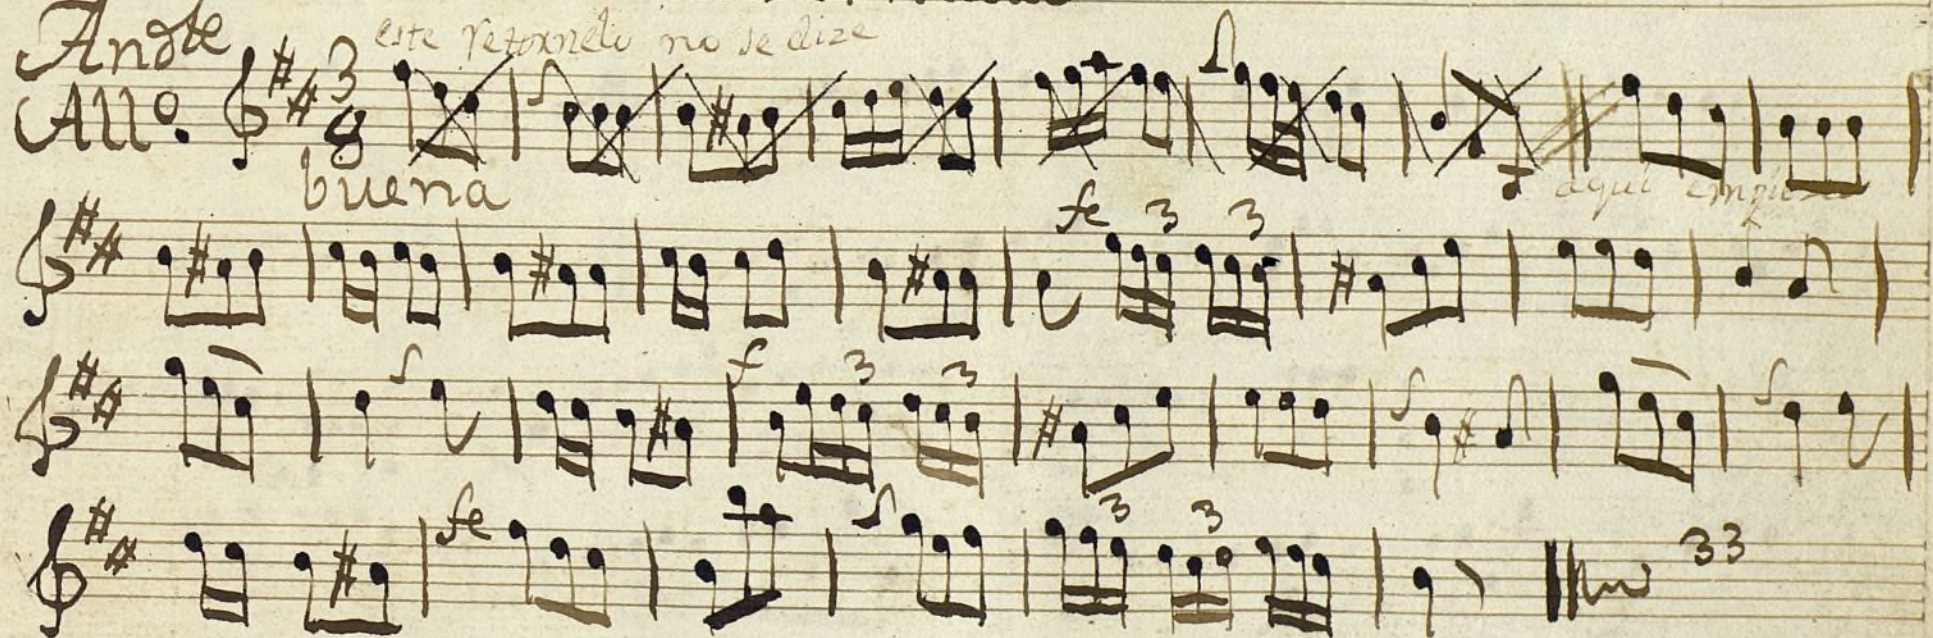 Andte este retornelo no se dize
All.º 3 8
buena aqui empieza
fe 3 3
f 3 3
fe 3 3 33